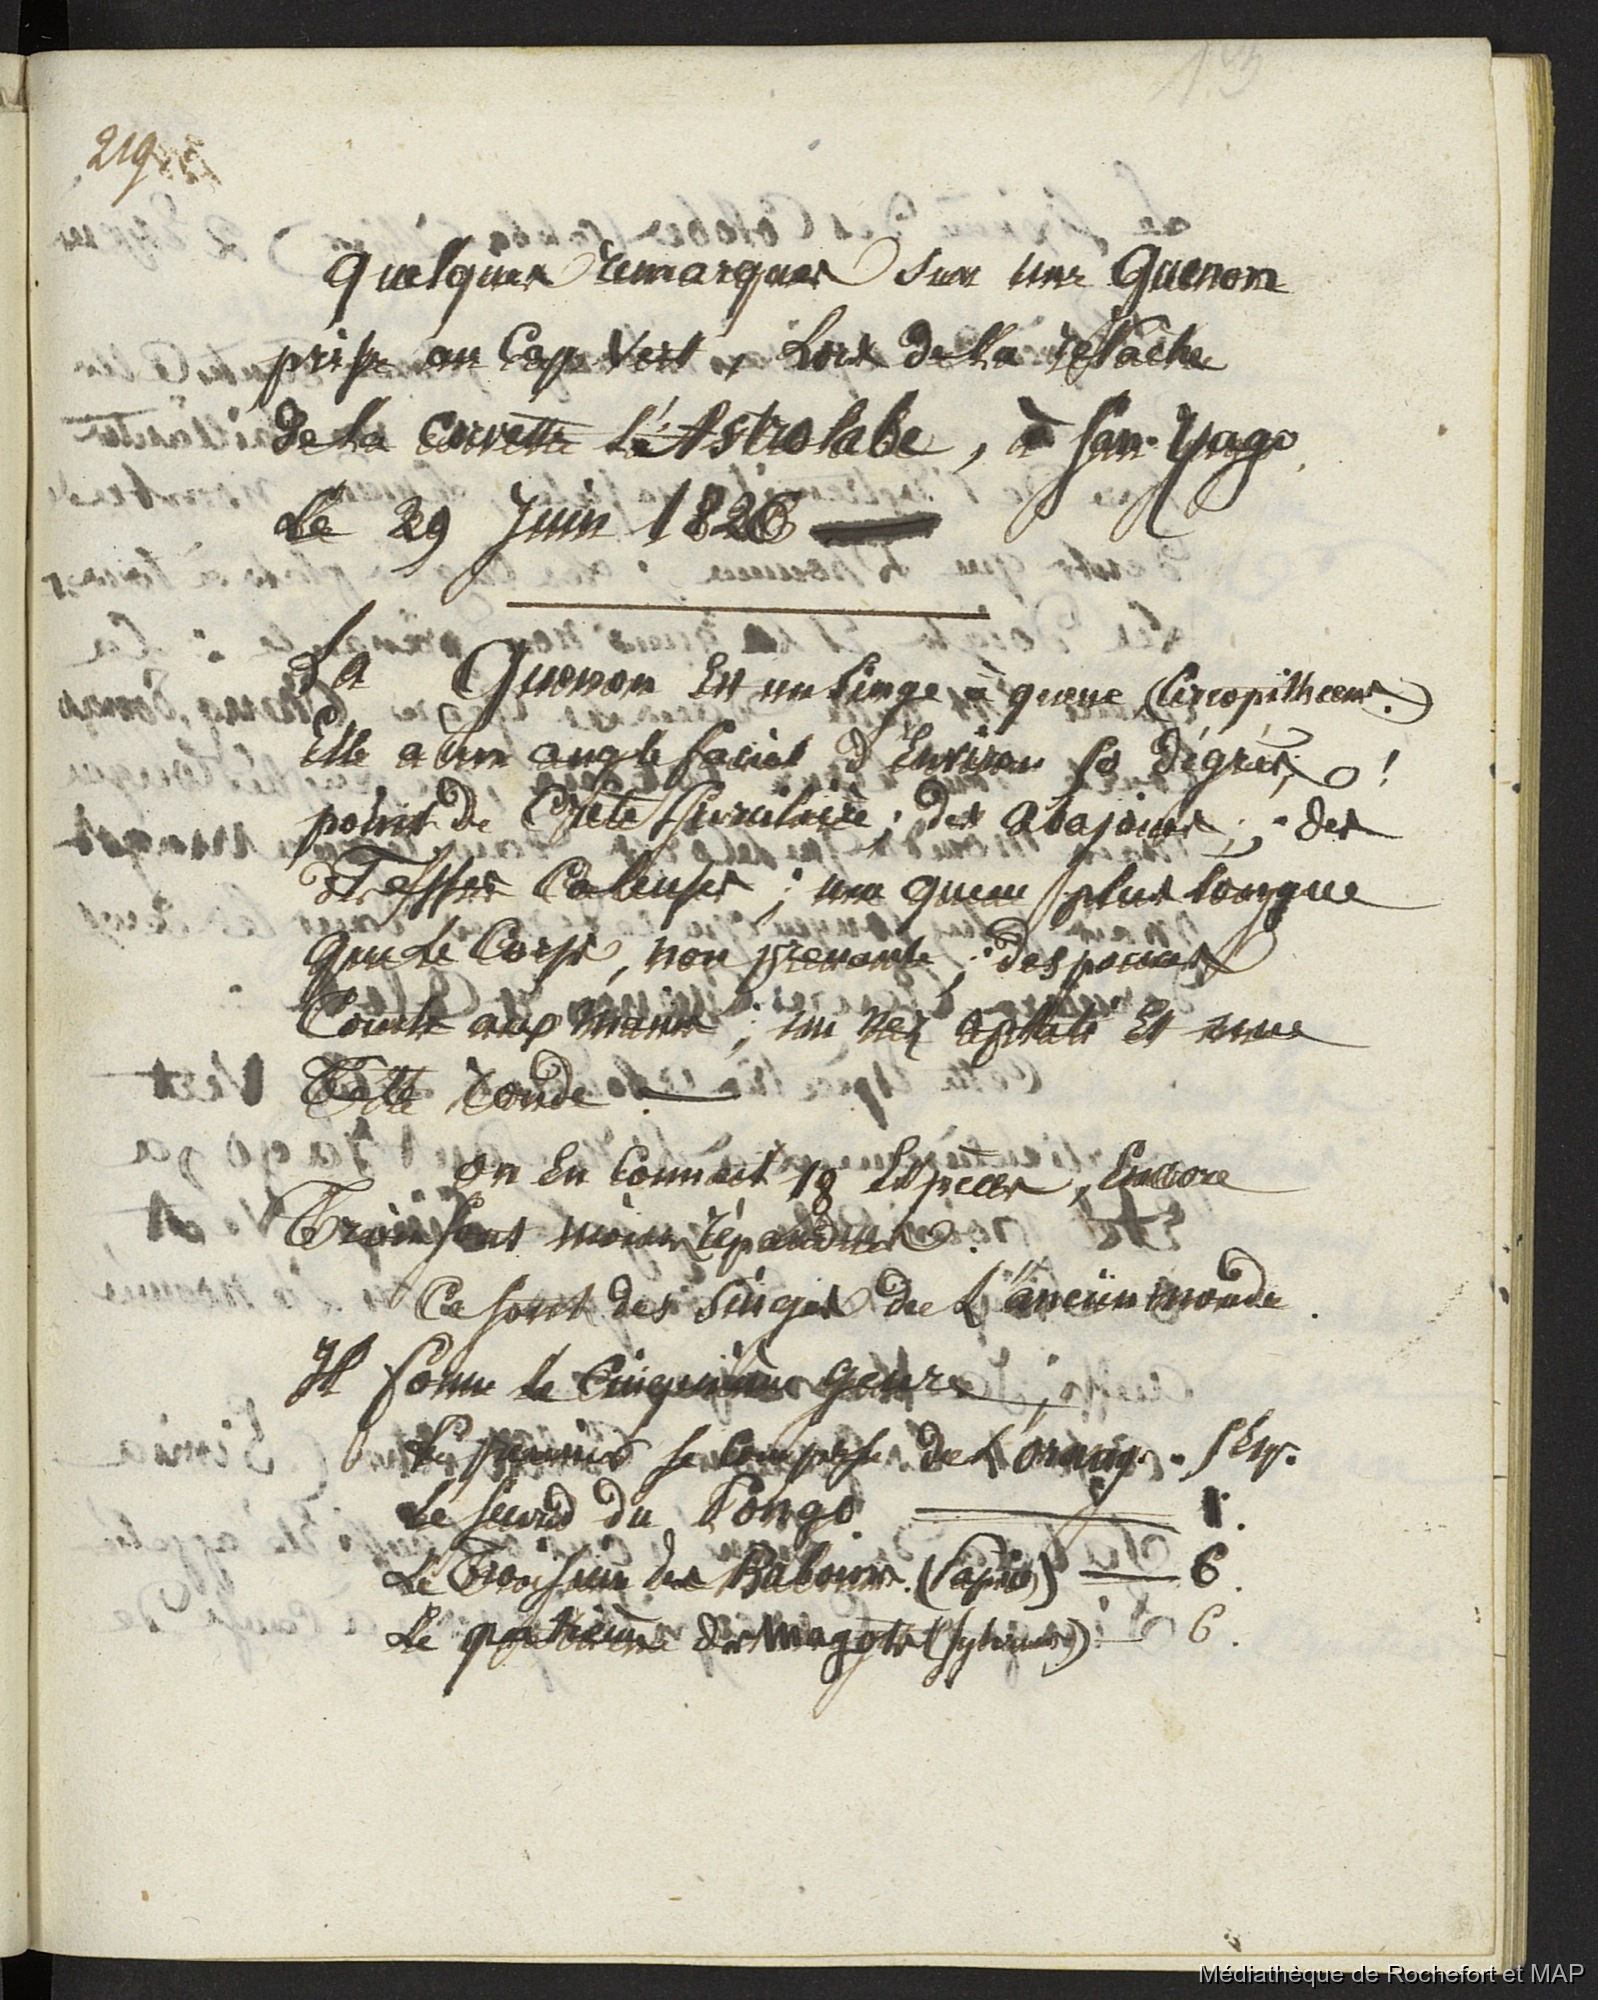 219
Quelques remarques sur une Guenon
prise au Cap Vert, Lors de la relâche
de la corvette l'Astrolabe, à San-Yago,
Le 29 Juin 1826
La Guenon Est un singe à queue (Cercopithecus.)
Elle a un angle facial d'Environ 50 dégrés;
point de Crête Surcilière; des abajoues; des
Fesses Caleuses; une queue plus longue
que le Corps, non prenante; des pouces
Courts aux mains; un nez aplati Et une
Tête ronde.
on En Connait 18 Espèces, Encore
Trois sont moins répandues.
Ce sont des Singes de L'ancien monde.
Il forme le Cinquième genre;
Le premier se Compose de L'orang. - 5 Esp.
Le second du Pongo 1.
Le Troisième des Babouins. (Papio) 6.
Le quatrième des Magots (Sylvanus) 6.
Médiathèque de Rochefort et MAP